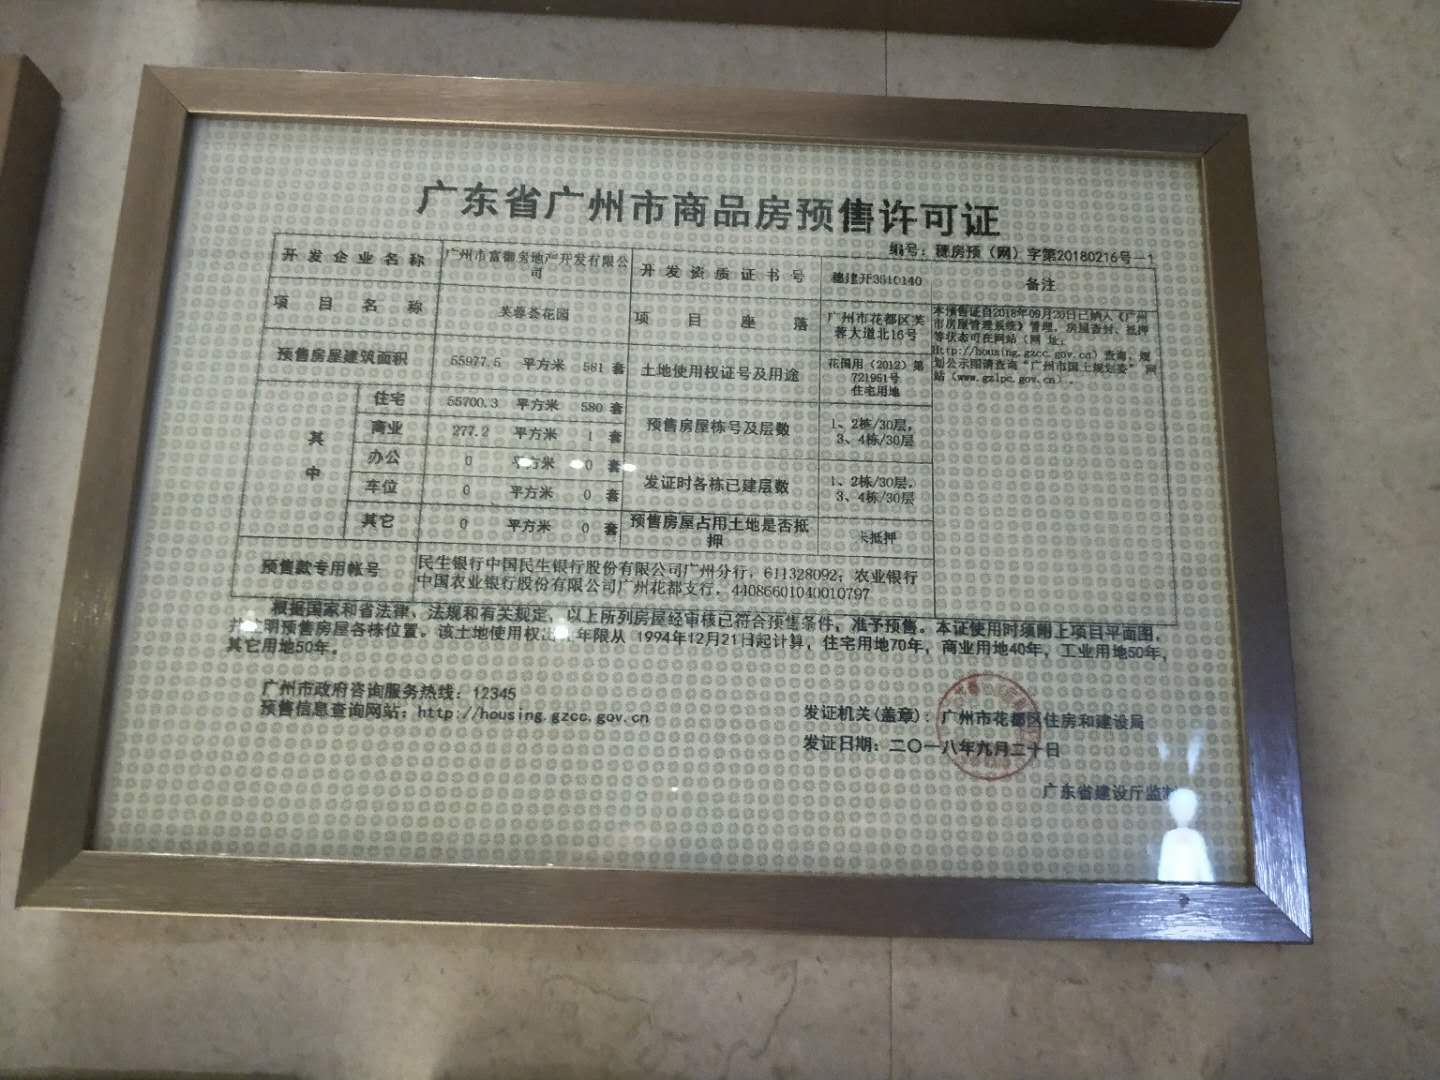 广东省广州市商品房预售许可证
编号：穗房预（网）字第20180216号-1
开发企业名称
广州市富御房地产开发有限公
司
开发资质证书号
穗建开3510140
备注
项目名称
芙蓉荟花园
项目座落
广州市花都区芙
蓉大道北16号
本预售证自2018年09月20日已纳入《广州
市房屋管理系统》管理，房屋查封、抵押
等状态可在网站（网 址：
Http://housing.gzcc.gov.cn）查询，规
划公示图请查询“广州市国土规划委”网
站（www.gzlpc.gov.cn）。
预售房屋建筑面积
55977.5 平方米 581 套
土地使用权证号及用途
花国用（2012）第
721951号
住宅用地
其中
住宅
55700.3 平方米 580 套
商业
277.2 平方米 1 套
预售房屋栋号及层数
1、2栋/30层，
3、4栋/30层
办公
0 平方米 0 套
车位
0 平方米 0 套
发证时各栋已建层数
1、2栋/30层，
3、4栋/30层
其它
0 平方米 0 套
预售房屋占用土地是否抵
押
未抵押
预售款专用帐号
民生银行中国民生银行股份有限公司广州分行，611328092；农业银行
中国农业银行股份有限公司广州花都支行，44086601040010797
根据国家和省法律、法规和有关规定，以上所列房屋经审核已符合预售条件，准予预售。本证使用时须附上项目平面图，
并注明预售房屋各栋位置。该土地使用权出让年限从 1994年12月21日起计算，住宅用地70年，商业用地40年，工业用地50年，
其它用地50年。
广州市政府咨询服务热线：12345
预售信息查询网站：http://housing.gzcc.gov.cn
发证机关(盖章)：广州市花都区住房和建设局
发证日期：二〇一八年九月二十日
广东省建设厅监制